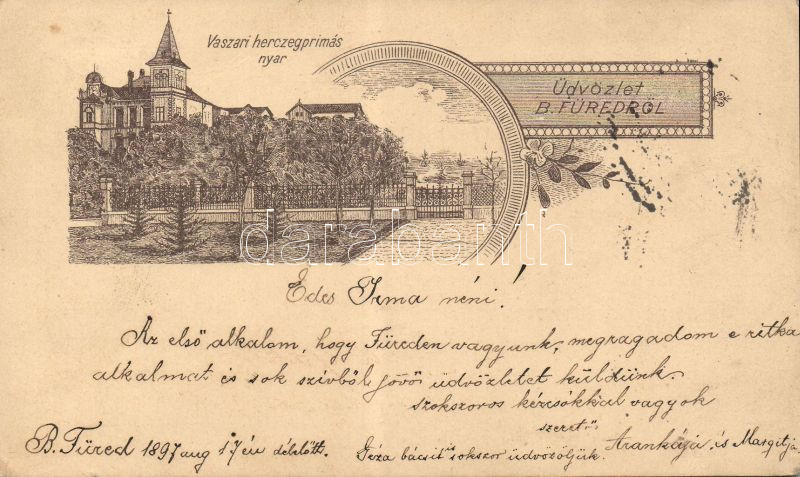 Vaszari herczegprimás
nyar
Üdvözlet
B. FÜREDRŐL
darabanth
Edes Irma néni!
Az első alkalom, hogy Füreden vagyunk, megragadom e ritka
alkalmat és sok szívből jövő üdvözletet küldünk.
szokszoros kézcsókkal vagyok
szerető
B. Füred 1897 aug 17én délelőtt.
Géza bácsit is sokszor üdvözöljük.
Arankája és Margitja